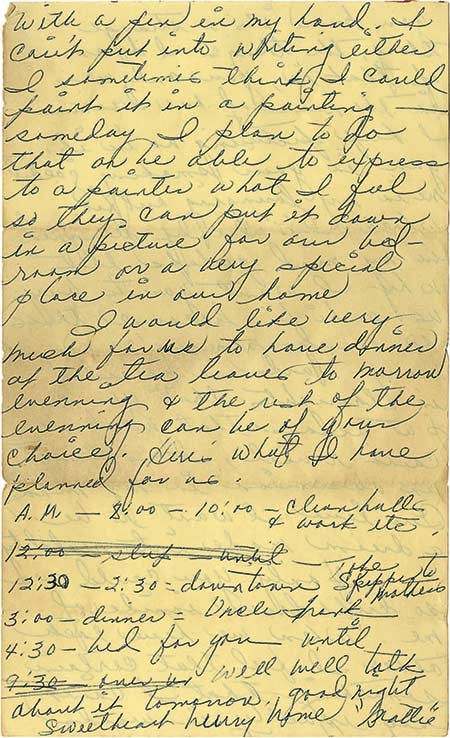 With a pen in my hand. I
can't put into writing either
I sometimes think I could
paint it in a painting —
someday I plan to do
that or be able to express
to a painter what I feel
so they can put it down
in a picture for our bed-
room or a very special
place in our home
I would like very
much for us to have dinner
at the tea leaves to morrow
evenning & the rest of the
evenning can be of your
choice. Heris what I have
planned for us.
A.M — 8:00 - 10:00 — Clean halls
& work etc.
12:00 — sleep until —
12:30 — 2:30 = downtown Take Skipper to
mothers
3:00 — dinner = Uncle
4:30 — bed for you until
9:30 — over well well talk
about it tomorrow. good night
Sweetheart hurry home "Mattie"